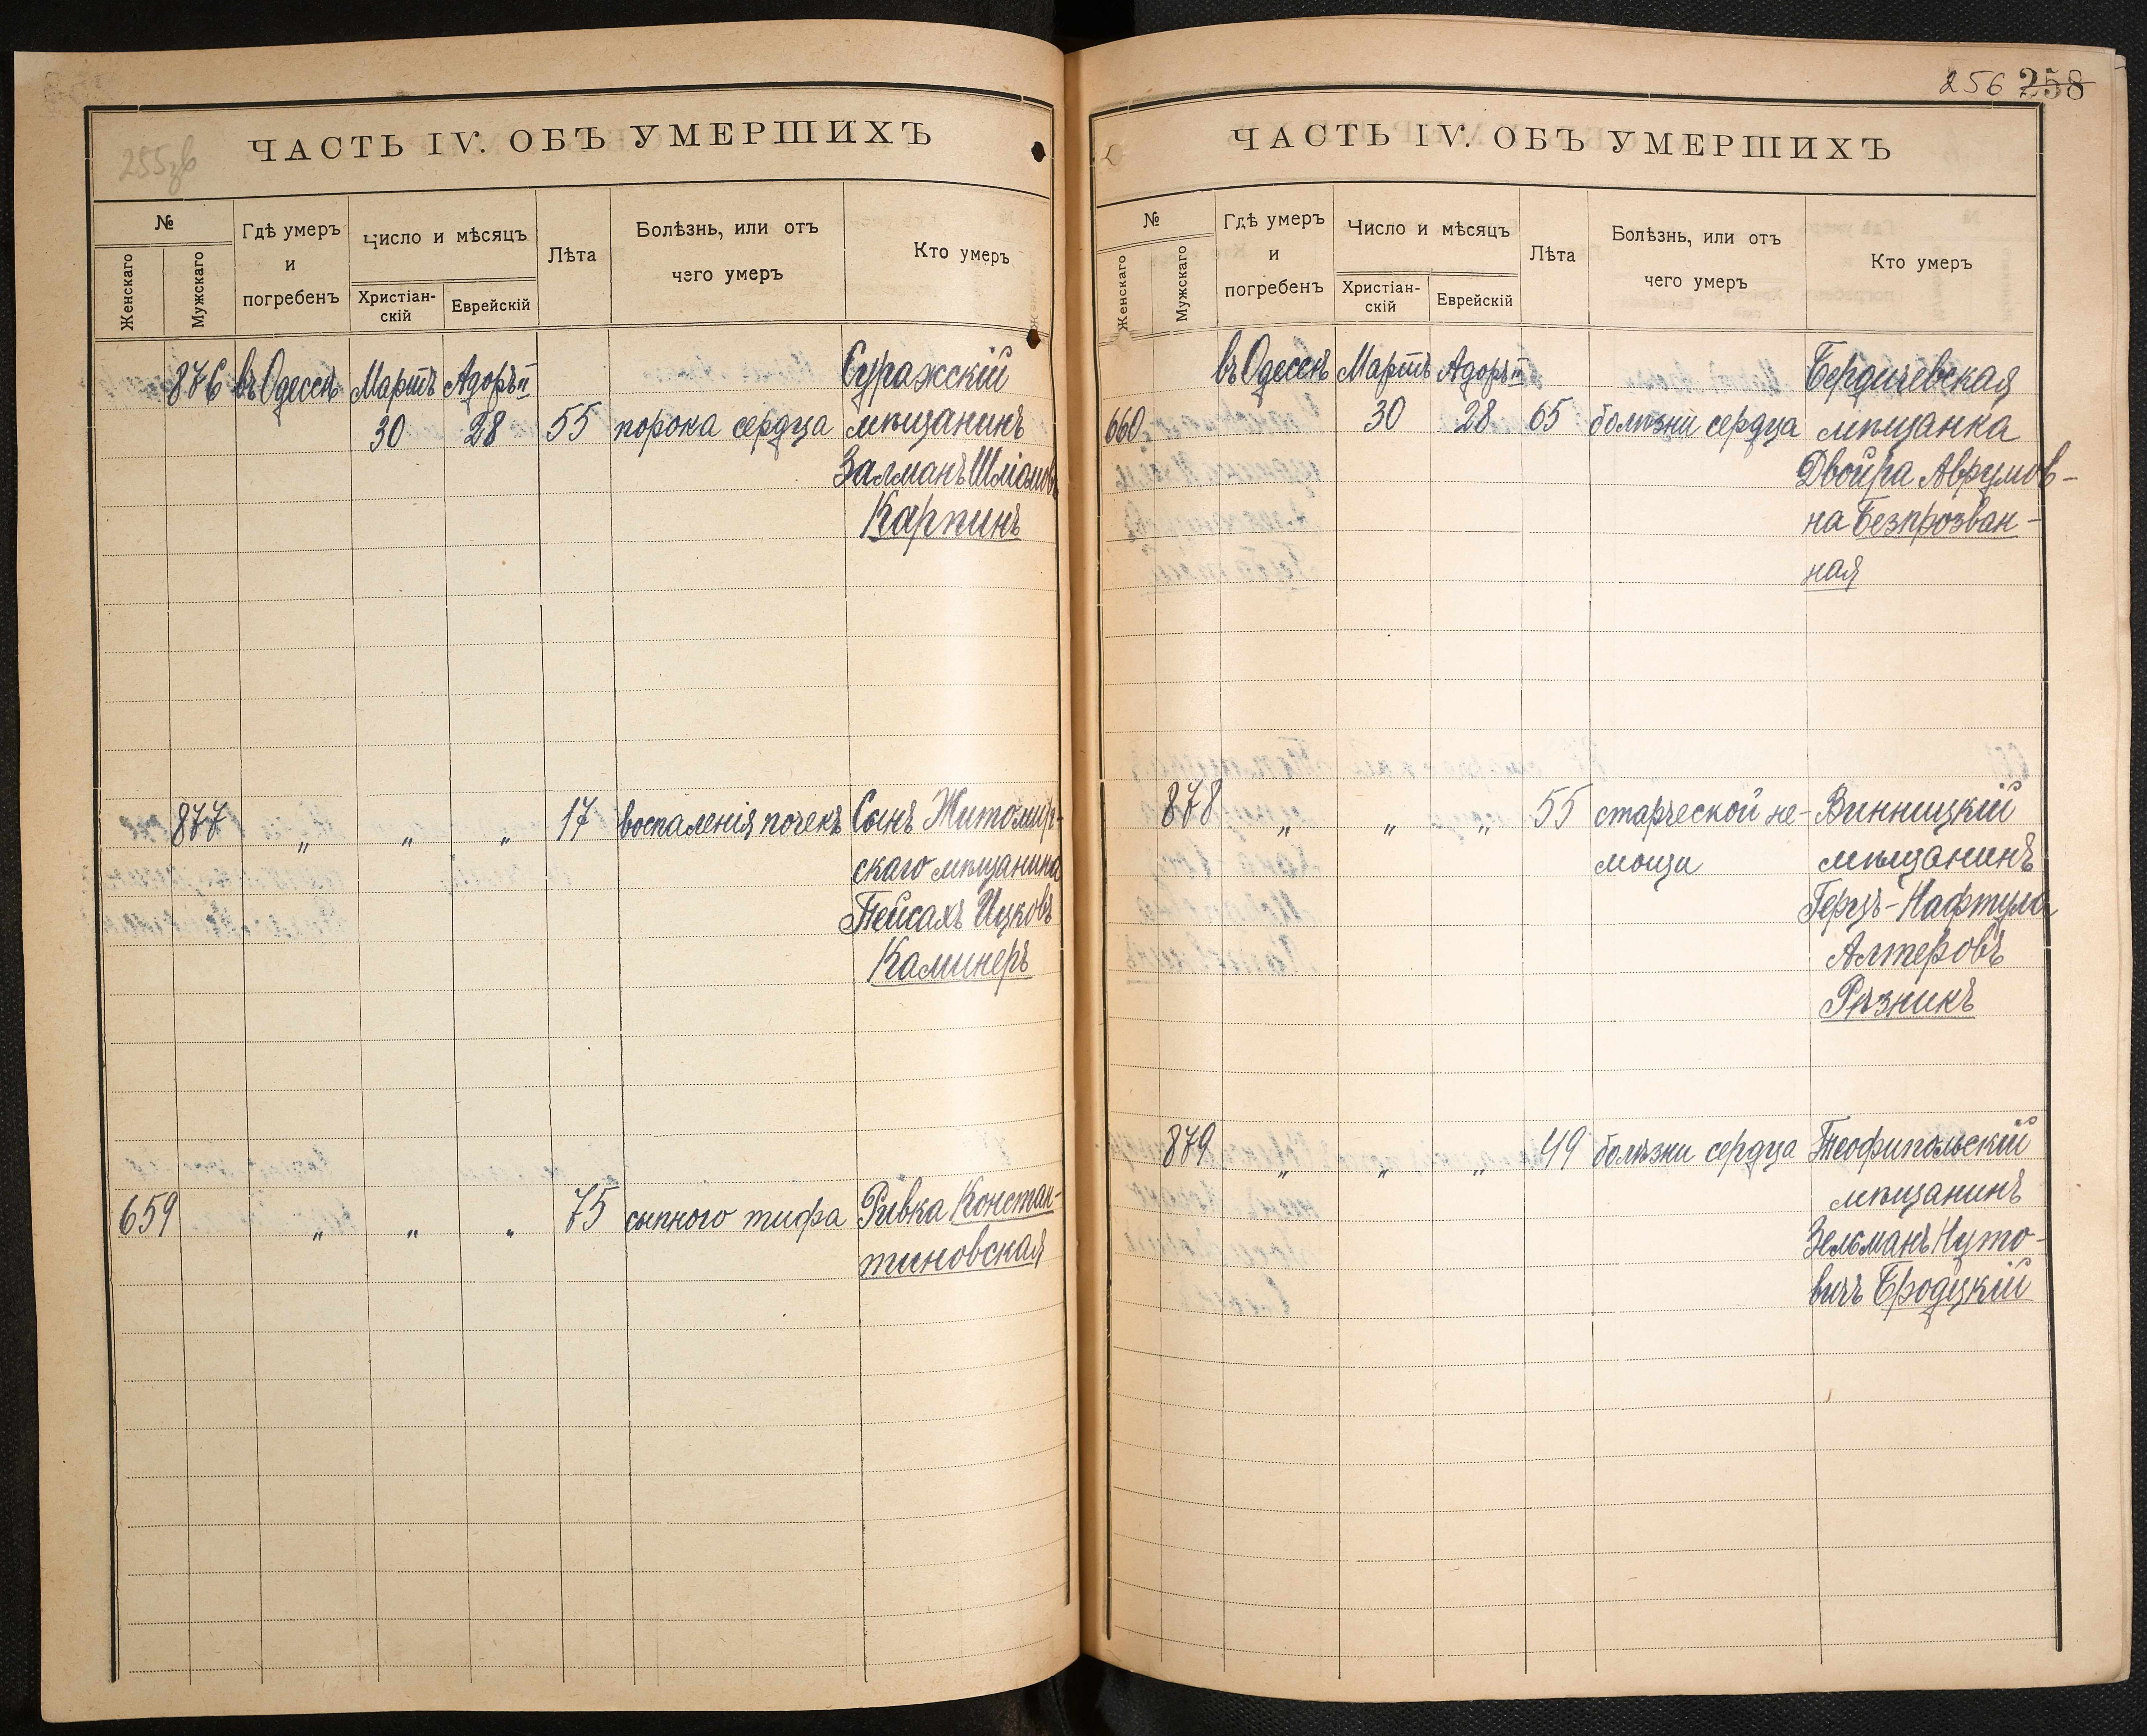 255зв
ЧАСТЬ IV. ОБЪ УМЕРШИХЪ
№
Женскаго
Мужскаго
Гдѣ умеръ
и
погребенъ
Число и мѣсяцъ
Христіан-
скій
Еврейскій
Лѣта
Болѣзнь, или отъ
чего умеръ
Кто умеръ
876 въ Одессѣ Мартъ Адоръ II Суражскій
30 28 55 порока сердца мѣщанинъ
Залманъ Шліомовъ
Карпинъ
877 „ „ „ 17 воспаленія почекъ Сынъ Житомир-
скаго мѣщанина
Пейсахъ Ицковъ
Каминеръ
659 „ „ „ 75 сыпного тифа Ривка Констан-
тиновская
256 258
ЧАСТЬ IV. ОБЪ УМЕРШИХЪ
№
Женскаго
Мужскаго
Гдѣ умеръ
и
погребенъ
Число и мѣсяцъ
Христіан-
скій
Еврейскій
Лѣта
Болѣзнь, или отъ
чего умеръ
Кто умеръ
въ Одессѣ Мартъ Адоръ II Бердичевская
660 30 28 65 болѣзни сердца мѣщанка
Двойра Аврумов-
на Безпрозван-
ная
878 „ „ „ 55 старческой не- Винницкій
мощи мѣщанинъ
Герцъ-Нафтула
Алтеровъ
Рѣзникъ
879 „ „ „ 49 болѣзни сердца Теофипольскій
мѣщанинъ
Зельманъ Нуто-
вичъ Бродцкій